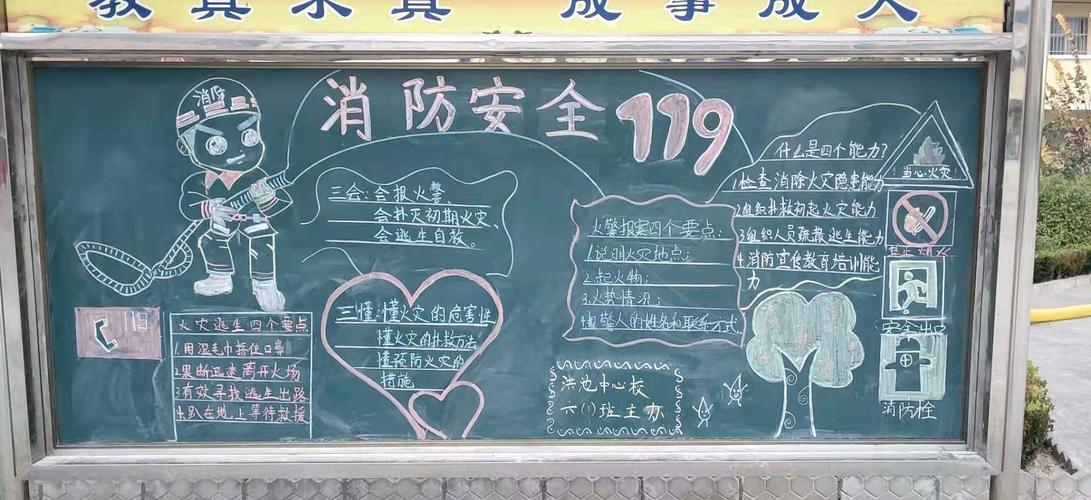 教真求真 成事成人
消防安全119
消防
三会:会报火警、
会扑灭初期火灾、
会逃生自救。
三懂:懂火灾的危害性
懂火灾的扑救方法
懂预防火灾的
措施
119
火灾逃生四个要点
1.用湿毛巾捂住口鼻
2.果断迅速离开火场
3.有效寻找逃生出路
4.趴在地上等待救援
火警报案四个要点:
1.说明火灾地点;
2.起火物;
3.火势情况;
4.报警人的姓名和联系方式
洪池中心校
六(1)班主办
什么是四个能力?
1检查消除火灾隐患能力
2组织扑救初起火灾能力
3组织人员疏散逃生能力
4.消防宣传教育培训能
力
当心火灾
禁止烟火
安全出口
消防栓